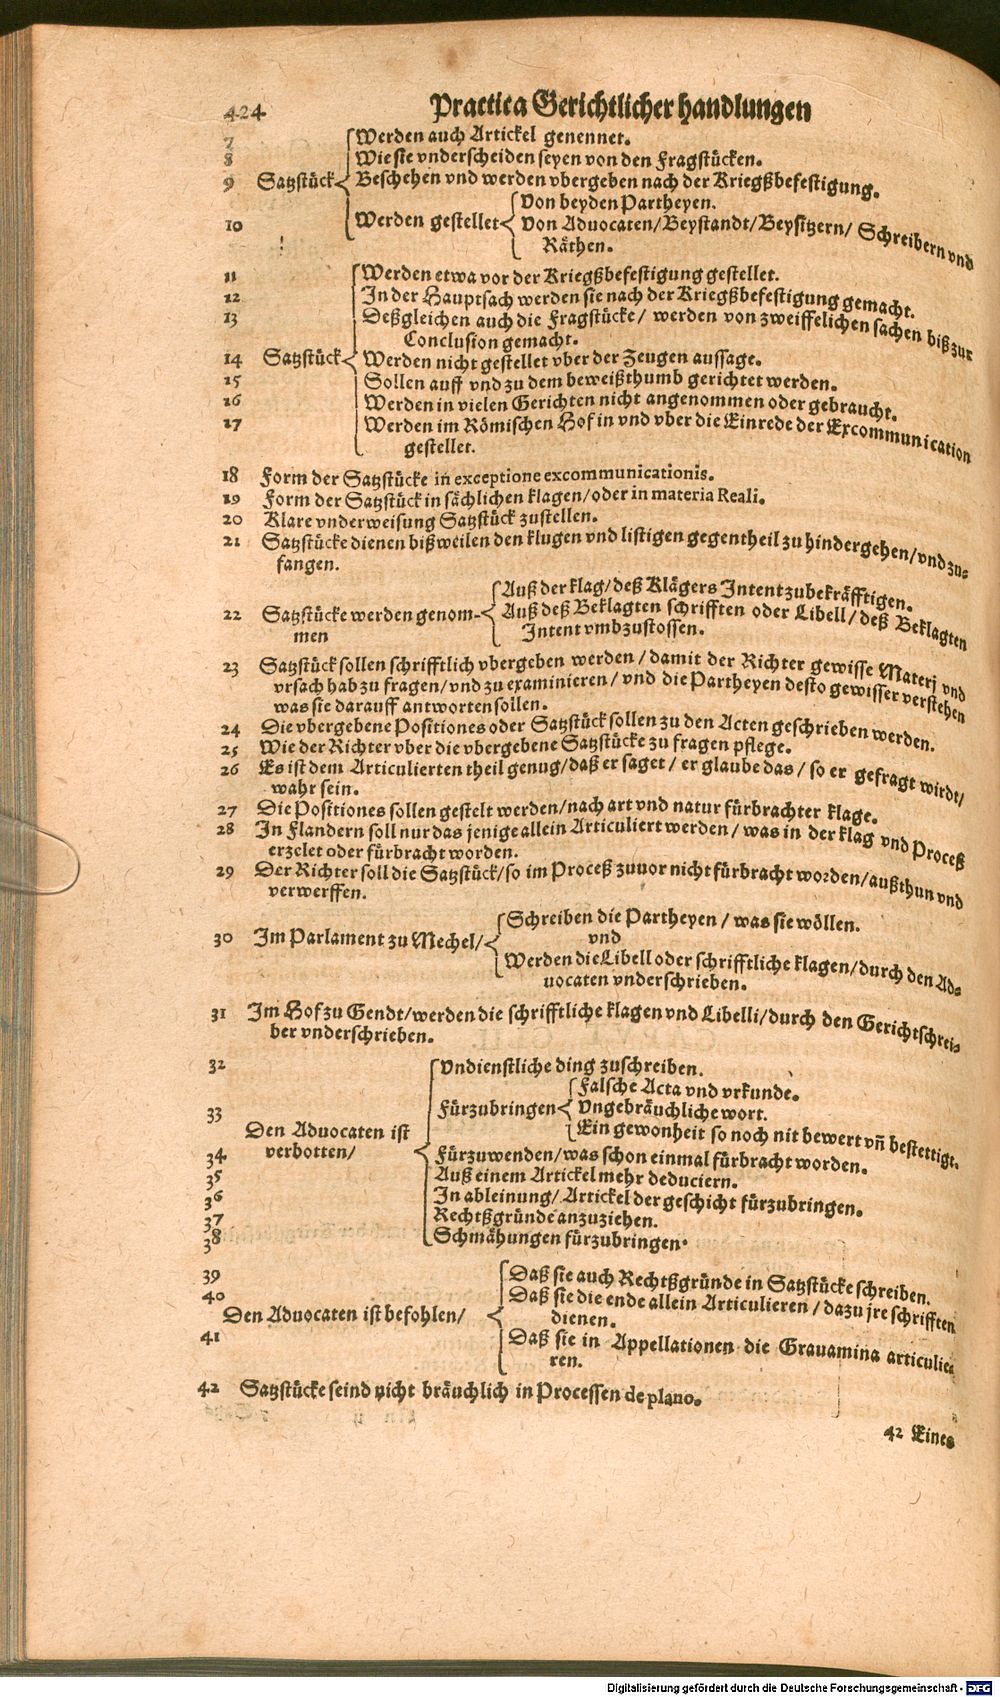 424 Practica Gerichtlicher handlungen
7 Werden auch Artickel genennet.
8 Wie sie vnderscheiden seyen von den Fragstücken.
9 Satzstück Beschehen vnd werden vbergeben nach der Kriegßbefestigung.
Von beyden Partheyen.
10 Werden gestellet Von Aduocaten/Beystandt/Beysitzern/ Schreibern vnd
Räthen.
11 Werden etwa vor der Kriegßbefestigung gestellet.
12 In der Hauptsach werden sie nach der Kriegßbefestigung gemacht.
13 Deßgleichen auch die Fragstücke/ werden von zweiffelichen sachen biß zur
Conclusion gemacht.
14 Satzstück Werden nicht gestellet vber der Zeugen aussage.
15 Sollen auff vnd zu dem beweißthumb gerichtet werden.
16 Werden in vielen Gerichten nicht angenommen oder gebraucht.
17 Werden im Römischen Hof in vnd vber die Einrede der Excommunication
gestellet.
18 Form der Satzstücke in exceptione excommunicationis.
19 Form der Satzstück in sächlichen klagen/oder in materia Reali.
20 Klare vnderweisung Satzstück zustellen.
21 Satzstücke dienen bißweilen den klugen vnd listigen gegentheil zu hindergehen/vnd zu-
fangen.
Auß der klag/deß Klägers Intent zubekräfftigen.
22 Satzstücke werden genom- Auß deß Beklagten schrifften oder Libell/deß Beklagten
men Intent vmbzustossen.
23 Satzstück sollen schrifftlich vbergeben werden/damit der Richter gewisse Materj vnd
vrsach hab zu fragen/vnd zu examinieren/vnd die Partheyen desto gewisser verstehen
was sie darauff antworten sollen.
24 Die vbergebene Positiones oder Satzstück sollen zu den Acten geschrieben werden.
25 Wie der Richter vber die vbergebene Satzstücke zu fragen pflege.
26 Es ist dem Articulierten theil genug/daß er saget/er glaube das/so er gefragt wirdt/
wahr sein.
27 Die Positiones sollen gestelt werden/nach art vnd natur fürbrachter klage.
28 In Flandern soll nur das jenige allein Articuliert werden/was in der klag vnd Proceß
erzelet oder fürbracht worden.
29 Der Richter soll die Satzstück/so im Proceß zuuor nicht fürbracht worden/außthun vnd
verwerffen.
Schreiben die Partheyen/was sie wöllen.
30 Im Parlament zu Mechel/ vnd
Werden die Libell oder schrifftliche klagen/durch den Ad-
uocaten vnderschrieben.
31 Im Hof zu Gendt/werden die schrifftliche klagen vnd Libelli/durch den Gerichtschrei-
ber vnderschrieben.
32 Vndienstliche ding zuschreiben.
Falsche Acta vnd vrkunde.
33 Fürzubringen Vngebräuchliche wort.
Den Aduocaten ist Ein gewonheit so noch nit bewert vñ bestettigt.
verbotten/
34 Fürzuwenden/was schon einmal fürbracht worden.
35 Auß einem Artickel mehr deduciern.
36 In ableinung/Artickel der geschicht fürzubringen.
37 Rechtßgründe anzuziehen.
38 Schmähungen fürzubringen.
39 Daß sie auch Rechtßgründe in Satzstücke schreiben.
40 Daß sie die ende allein Articulieren/dazu jre schrifften
Den Aduocaten ist befohlen/ dienen.
41 Daß sie in Appellationen die Grauamina articulie-
ren.
42 Satzstücke seind nicht bräuchlich in Processen de plano.
42 Eines
Digitalisierung gefördert durch die Deutsche Forschungsgemeinschaft - DFG